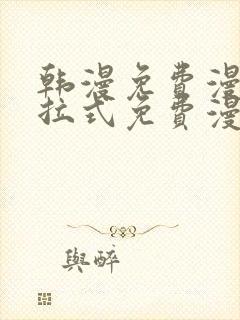 韩漫免费漫
拉式免费漫
與醉